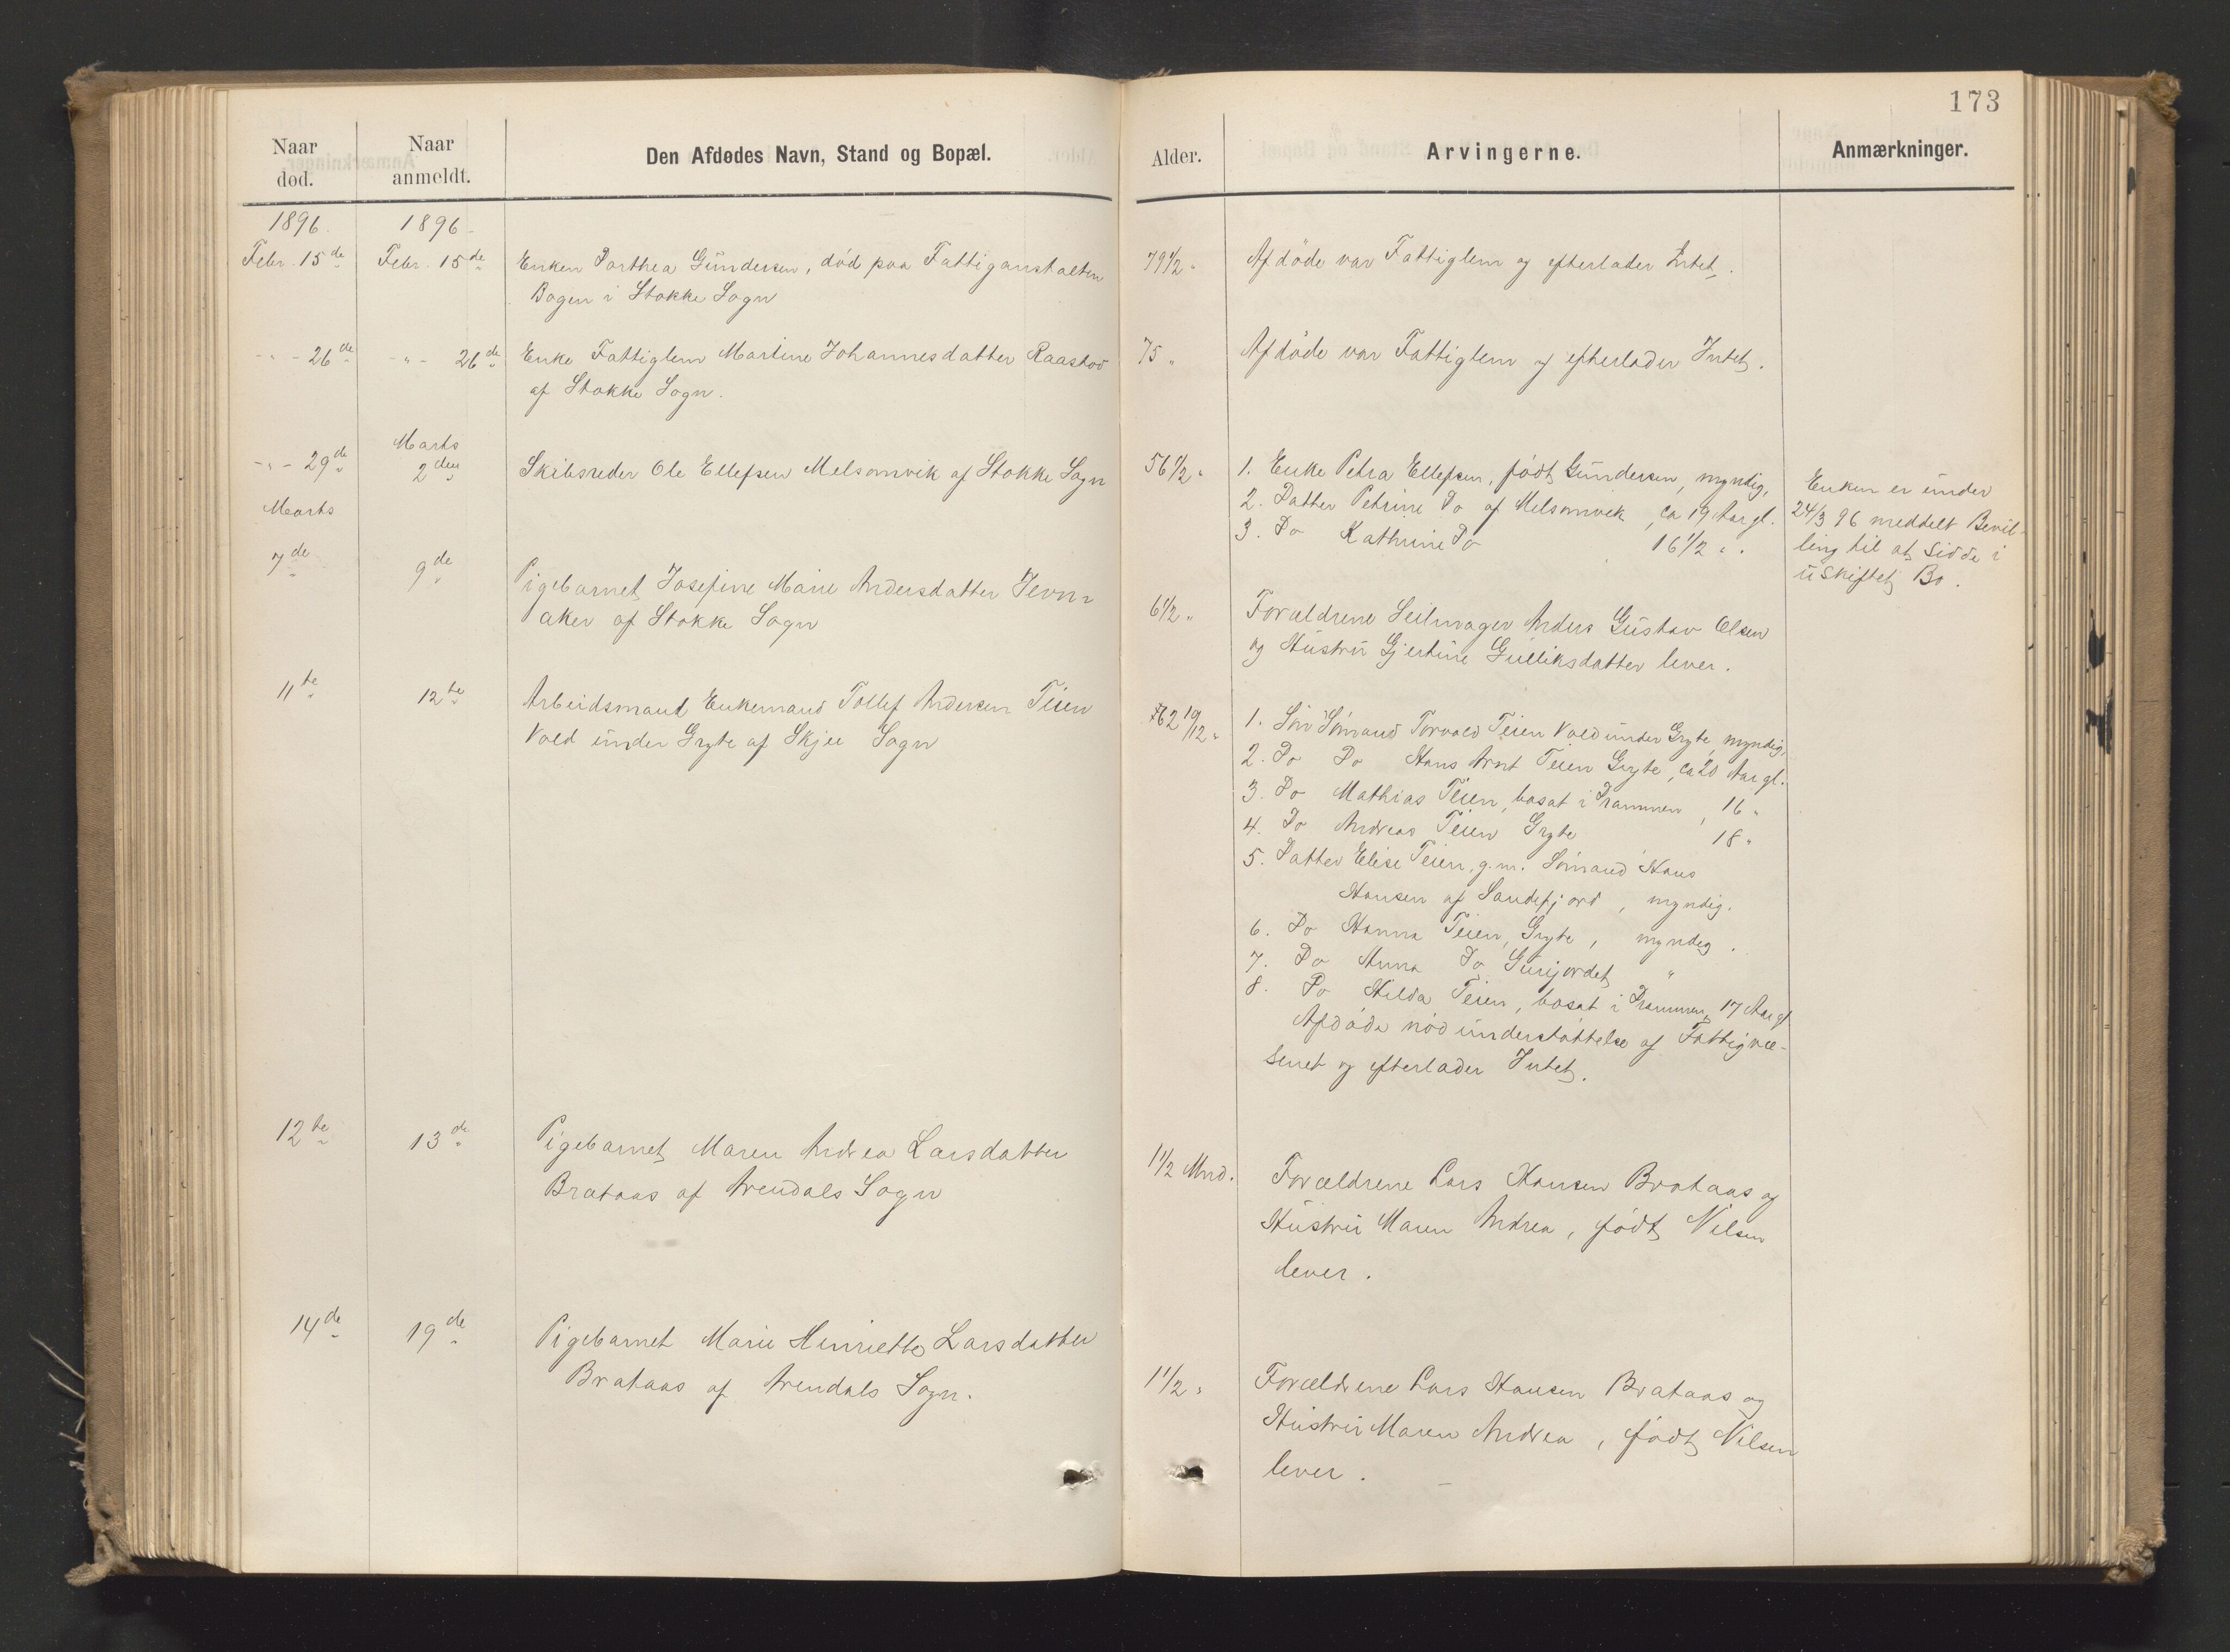 173
Naar død.
Naar anmeldt.
Den Afdødes Navn, Stand og Bopæl.
Alder.
Arvingerne.
Anmærkninger.
1896 1896
Febr. 15de Febr. 15de Enken Dorthea Gundersen, død paa Fattiganstalten
Bogen i Stokke Sogn
79 1/2 " Afdøde var Fattiglem og efterlader Intet.
- " - 26de - " - 26de Enke Fattiglem Martine Johannesdatter Raastad
af Stokke Sogn.
75 " Afdøde var Fattiglem og efterlader Intet.
- " - 29de Marts 2den Skibsreder Ole Ellefsen Melsomvik af Stokke Sogn
56 1/2 " 1. Enke Petra Ellefsen, født Gundersen, myndig,
2. Datter Petrine Do af Melsomvik, ca 19 Aar gl.
3. Do Kathrine Do 16 1/2 " .
Enken er under
24/3 96 meddelt Bevil-
ling til at sidde i
uskiftet Bo.
Marts
7de 9de Pigebarnet Josefine Marie Andersdatter Jevn-
aker af Stokke Sogn
6 1/2 " Forældrene Seilmager Anders Gustav Olsen
og Hustru Gjertine Gulliksdatter lever.
11te 12te Arbeidsmand Enkemand Tollef Andersen Teien
Vold under Gryte af Skjee Sogn
62 10/12 " 1. Søn Sømand Torvald Teien Vold under Gryte, myndig,
2. Do Do Hans Arnt Teien Gryte, ca 20 Aar gl.
3. Do Mathias Teien, bosat i Drammen, 16 "
4. Do Andreas Teien Gryte 18 "
5. Datter Elise Teien, g.m. Sømand Hans
Hansen af Sandefjord, myndig.
6. Do Hanna Teien, Gryte, myndig.
7. Do Anna Do Gurijordet "
8. Do Hilda Teien, bosat i Drammen, 17 Aar gl
Afdøde nød understøttelse af Fattigvæ-
senet og efterlader Intet.
12te 13de Pigebarnet Maren Andrea Larsdatter
Brataas af Arendals Sogn
1 1/2 Mnd. Forældrene Lars Hansen Brataas og
Hustru Maren Andrea, født Nilsen
lever.
14de 19de Pigebarnet Marie Henriette Larsdatter
Brataas af Arendals Sogn.
1 1/2 " Forældrene Lars Hansen Brataas og
Hustru Maren Andrea, født Nilsen
lever.